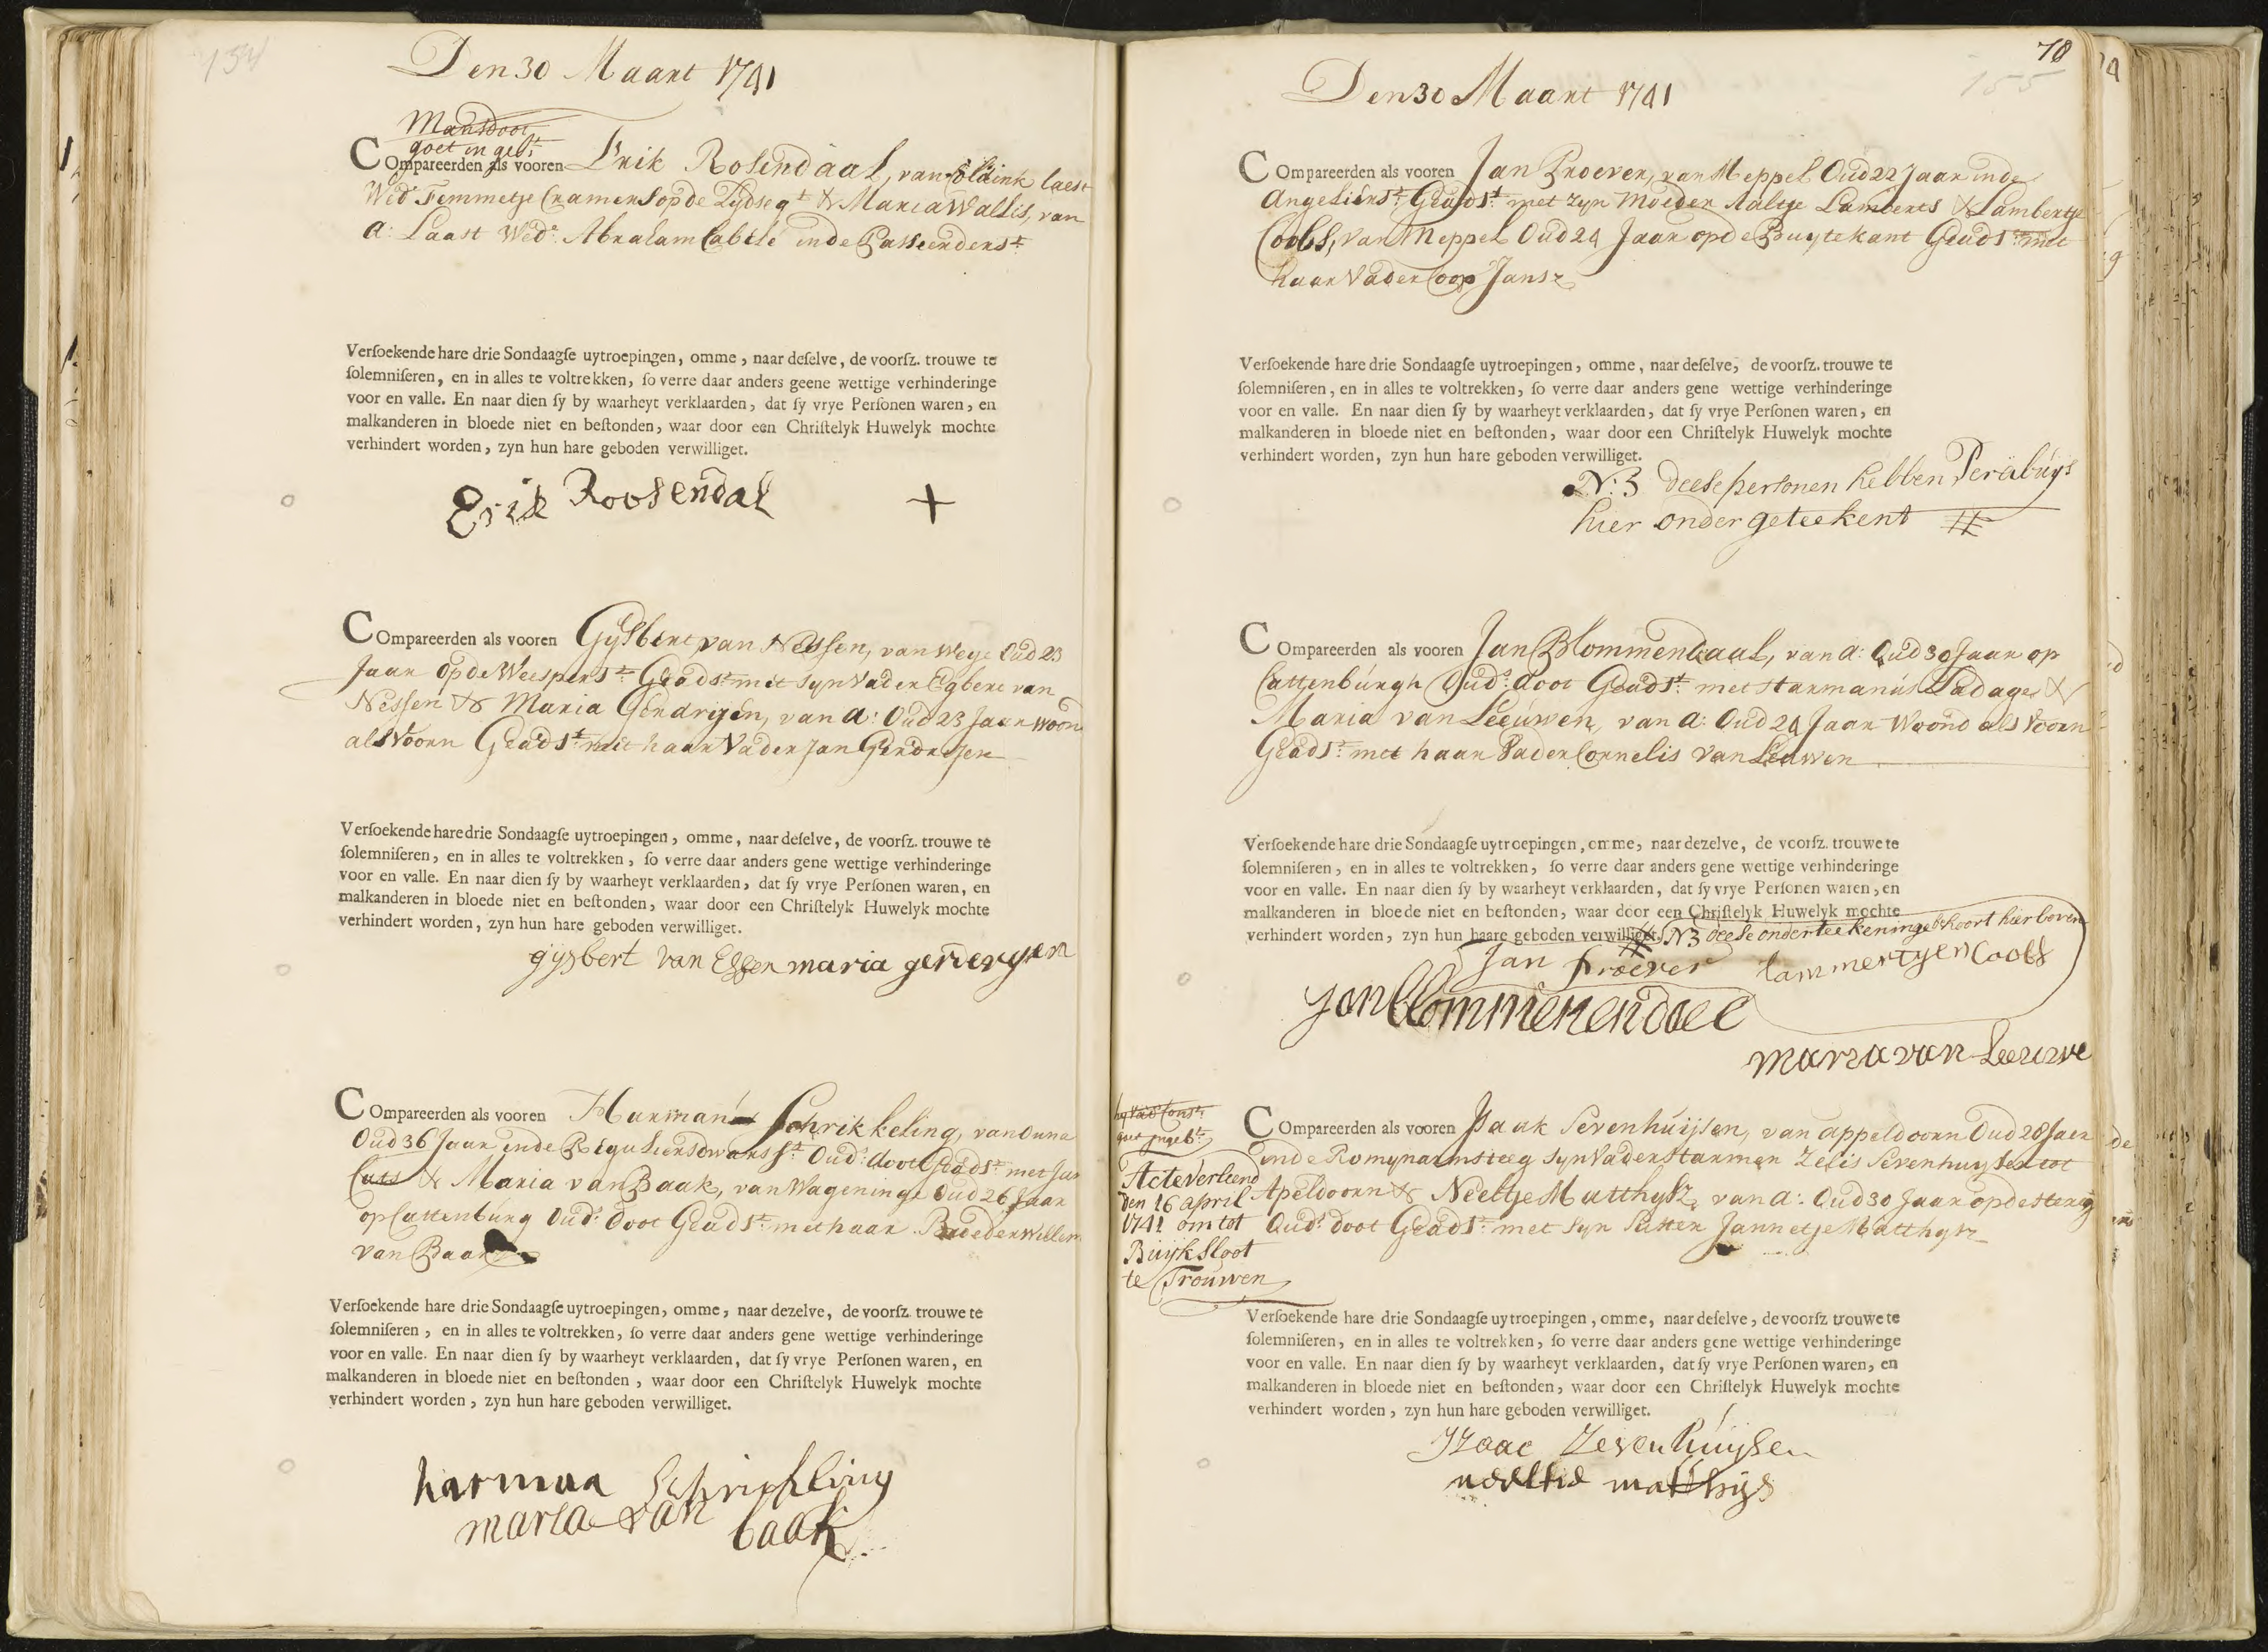 154
Den 30 Maart 1741
Mansdoot
goet in gebt.
Compareerden als vooren Erik Rosendaal, van Coldink laest
Wedr. Femmetje Cramers op de Lydse gt. & Maria Wallis, van
A: Laast Wede. Abraham Cablé inde Passeerderst.
Versoekende hare drie Sondaagse uytroepingen, omme, naar deselve, de voorsz. trouwe te
solemniseren, en in alles te voltrekken, so verre daar anders geene wettige verhinderinge
voor en valle. En naar dien sy by waarheyt verklaarden, dat sy vrye Personen waren, en
malkanderen in bloede niet en bestonden, waar door een Christelyk Huwelyk mochte
verhindert worden, zyn hun hare geboden verwilliget.
Erik Roosendal +
Compareerden als vooren Gysbert van Nessen, van Weye Oud 23
Jaar op de Weespersst. Geadst. met syn Vader Egbert van
Nessen & Maria Gerdrijen, van A: Oud 23 Jaar woond
als Voorn Geadst. met haar Vader Jan Gerdrijen
Versoekende hare drie Sondaagse uytroepingen, omme, naar deselve, de voorsz. trouwe te
solemniseren, en in alles te voltrekken, so verre daar anders gene wettige verhinderinge
voor en valle. En naar dien sy by waarheyt verklaarden, dat sy vrye Personen waren, en
malkanderen in bloede niet en bestonden, waar door een Christelyk Huwelyk mochte
verhindert worden, zyn hun hare geboden verwilliget.
gysbert van Essen maria gerderyen
Compareerden als vooren Harman Schrikkeling, van Duna
Oud 36 Jaar inde Reguliersdwarsst. Ouds. doot Geadst. met Jan
Cats & Maria van Baak, van Wageninge Oud 26 Jaar
op Cattenburg Ouds. doot Geadst. met haar Broeder Willem
van Baak
Versoekende hare drie Sondaagse uytroepingen, omme, naar dezelve, de voorsz. trouwe te
solemniseren, en in alles te voltrekken, so verre daar anders gene wettige verhinderinge
voor en valle. En naar dien sy by waarheyt verklaarden, dat sy vrye Personen waren, en
malkanderen in bloede niet en bestonden, waar door een Christelyk Huwelyk mochte
verhindert worden, zyn hun hare geboden verwilliget.
harman Schrikling
maria van baak
78
155
Den 30 Maart 1741
Compareerden als vooren Jan Proever, van Meppel Oud 22 Jaar inde
Angeliersst. Geadst. met zyn Moeder Aaltje Lamberts & Lambertje
Cools, van Meppel Oud 24 Jaar op de Buytekant Geadst. met
haar Vader Coop Jansz
Versoekende hare drie Sondaagse uytroepingen, omme, naar deselve, de voorsz. trouwe te
solemniseren, en in alles te voltrekken, so verre daar anders gene wettige verhinderinge
voor en valle. En naar dien sy by waarheyt verklaarden, dat sy vrye Personen waren, en
malkanderen in bloede niet en bestonden, waar door een Christelyk Huwelyk mochte
verhindert worden, zyn hun hare geboden verwilliget.
N: B deese personen hebben Per abuys
hier onder geteekent #
Compareerden als vooren Jan Blommendaal, van A: Oud 30 Jaar op
Cattenburgh Ouds. doot Geadst. met Harmanus Ladage &
Maria van Leeuwen, van A: Oud 24 Jaar Woond als Voorn
Geadst. met haar Vader Cornelis van Leeuwen
Versoekende hare drie Sondaagse uytroepingen, omme, naar dezelve, de voorsz. trouwe te
solemniseren, en in alles te voltrekken, so verre daar anders gene wettige verhinderinge
voor en valle. En naar dien sy by waarheyt verklaarden, dat sy vrye Personen waren, en
malkanderen in bloede niet en bestonden, waar door een Christelyk Huwelyk mochte
verhindert worden, zyn hun haare geboden verwilliget. # NB deese onderteekeninge behoort hier boven
Jan Proever Lammertyen Cools
Jan Blommerendael
maria van Leeuwe
goet in gebt.
Acte Verleend
den 16 april
1741 om tot
Buijksloot
te Trouwen
Compareerden als vooren Isaak Sevenhuijsen, van Appeldoorn Oud 28 Jaer
inde Romynarmsteeg syn Vader Harmen Zelis Sevenhuysen tot
Apeldoorn & Neeltje Matthysz, van A: Oud 30 Jaar op de
Ouds. doot Geadst. met syn Suster Jannetje Matthysz
Versoekende hare drie Sondaagse uytroepingen, omme, naar deselve, de voorsz trouwe te
solemniseren, en in alles te voltrekken, so verre daar anders gene wettige verhinderinge
voor en valle. En naar dien sy by waarheyt verklaarden, dat sy vrye Personen waren, en
malkanderen in bloede niet en bestonden, waar door een Christelyk Huwelyk mochte
verhindert worden, zyn hun hare geboden verwilliget.
Izaac Zevenhuijsen
neeltie matthijs